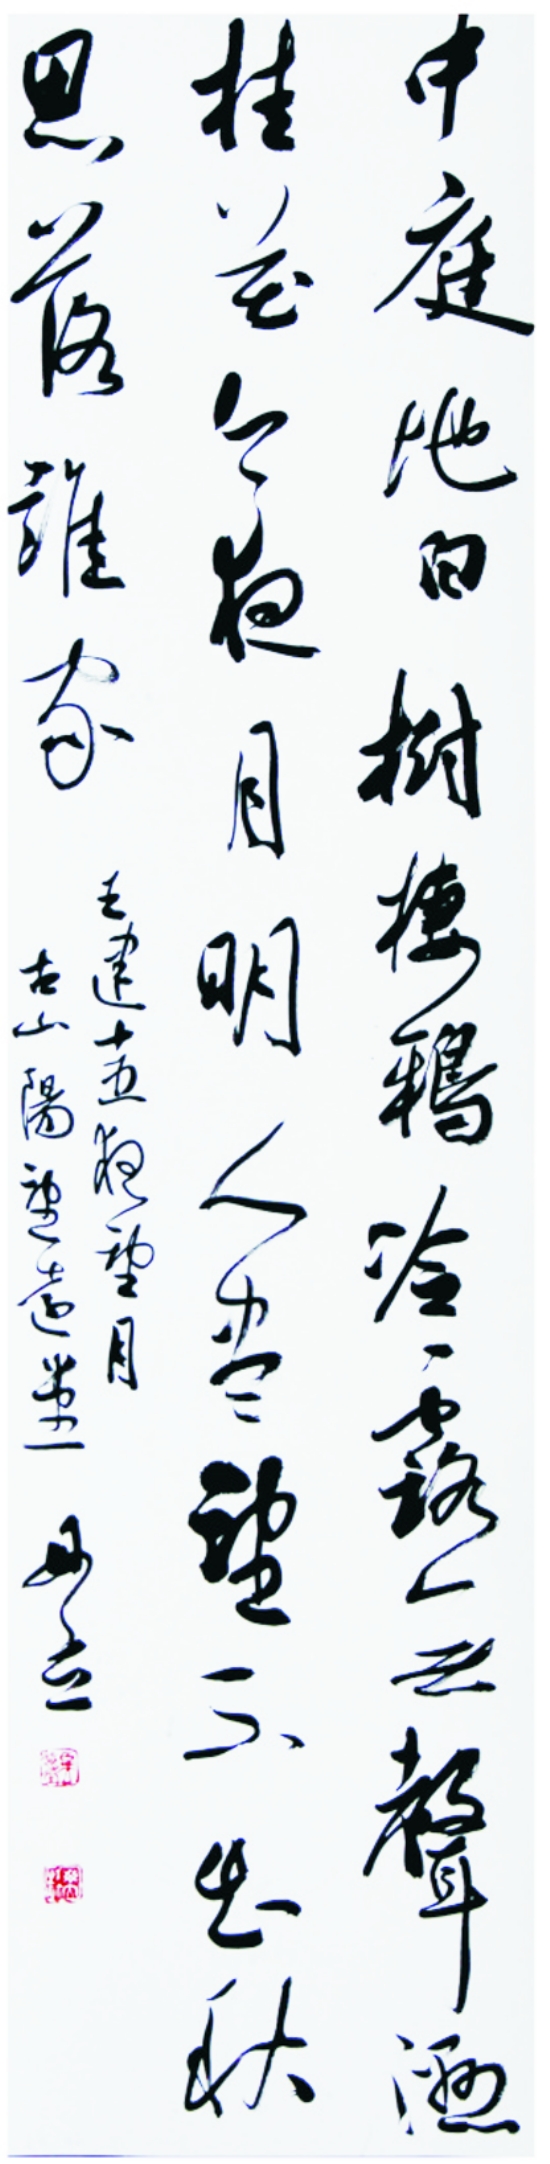 中庭地白樹棲鴉冷露無聲濕
桂花今夜月明人盡望不知秋
思落誰家
王建十五夜望月
古山陽望遠堂